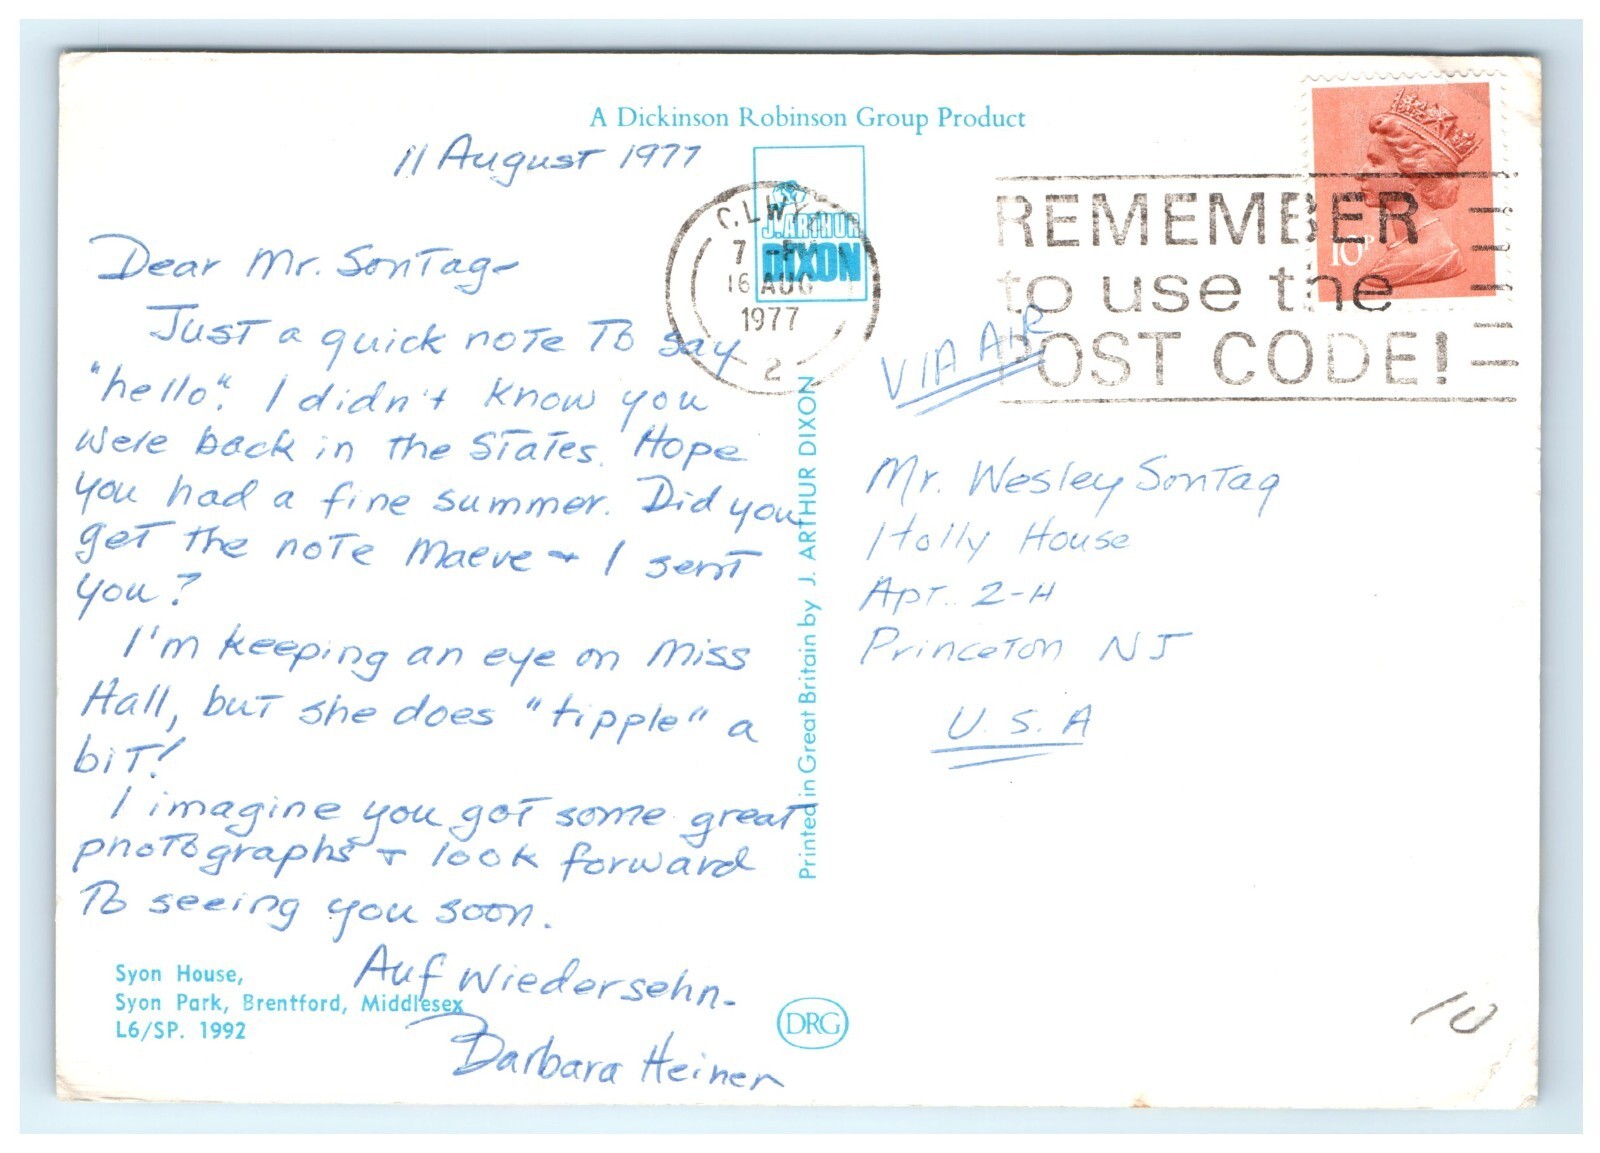 A Dickinson Robinson Group Product
11 August 1977
Dear Mr. Sontag-
Just a quick note to say
"hello". I didn't know you
were back in the States. Hope
you had a fine summer. Did you
get the note Maeve + I sent
you?
I'm keeping an eye on Miss
Hall, but she does "tipple" a
bit!
I imagine you got some great
photographs + look forward
to seeing you soon.
Auf Wiedersehn-
Barbara Heiner
Syon House,
Syon Park, Brentford, Middlesex
L6/SP. 1992
J. ARTHUR
DIXON
7
16 AUG
1977
2
Printed in Great Britain by J. ARTHUR DIXON
DRG
REMEMBER
to use the
POST CODE!
10P
VIA AIR
Mr. Wesley Sontag
Holly House
Apt. 2-H
Princeton NJ
U.S.A
10